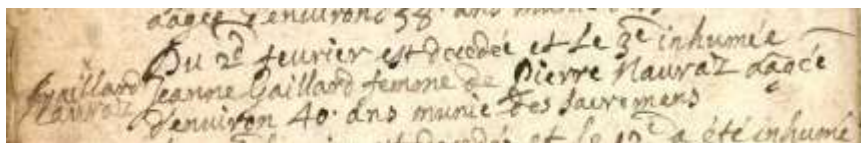 aagée d'environ 58 ans munie des
Du 2d fevrier est decedeé et Le 3e inhumée
Gaillard Jeanne Gaillard femme de Pierre Navraz aagée
Navraz d'environ 40 ans munie des sacremens
est decedé et le 12e a été inhumé